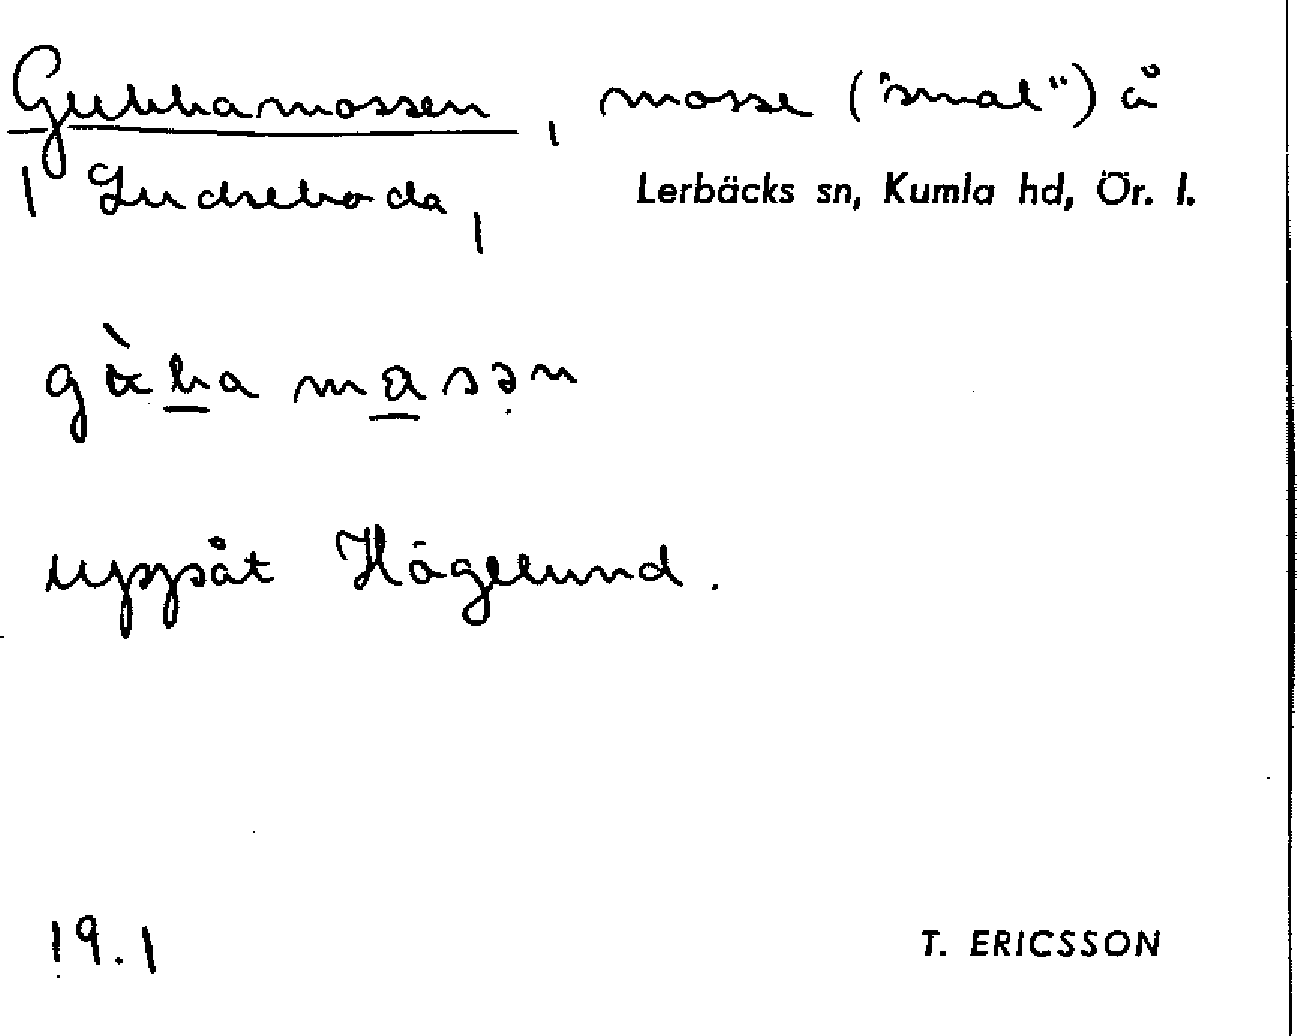 Gukkamossen, mosse ("smal") å
Ludseboda, Lerbäcks sn, Kumla hd, Ör. l.
uppåt Högelund.
19.1 T. ERICSSON